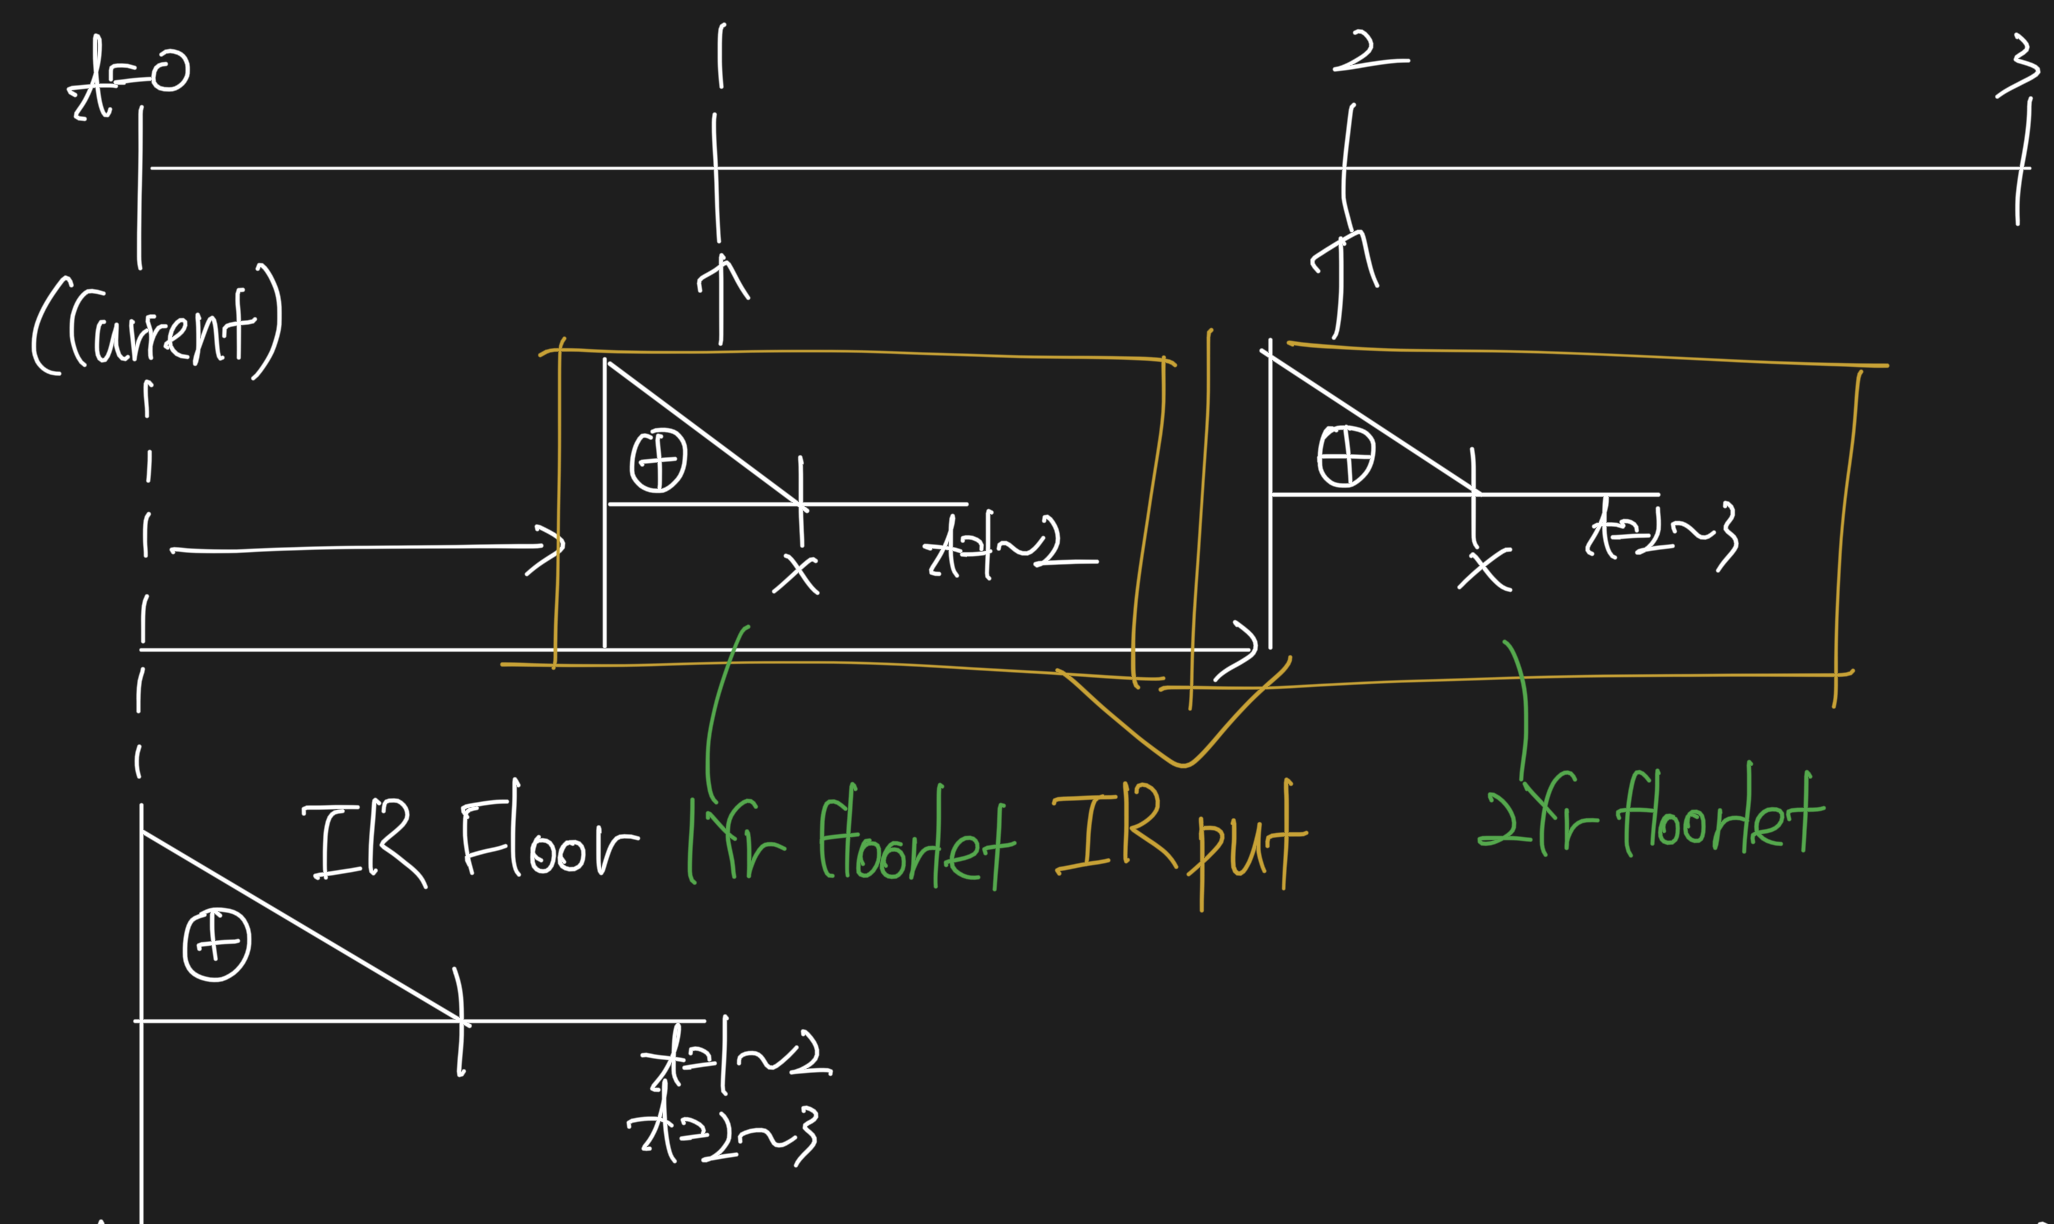 t=0
1
2
3
(Current)
⊕
X
t=1~2
⊕
X
t=2~3
IR Floor
1Yr floorlet
IR put
2Yr floorlet
⊕
t=1~2
t=2~3